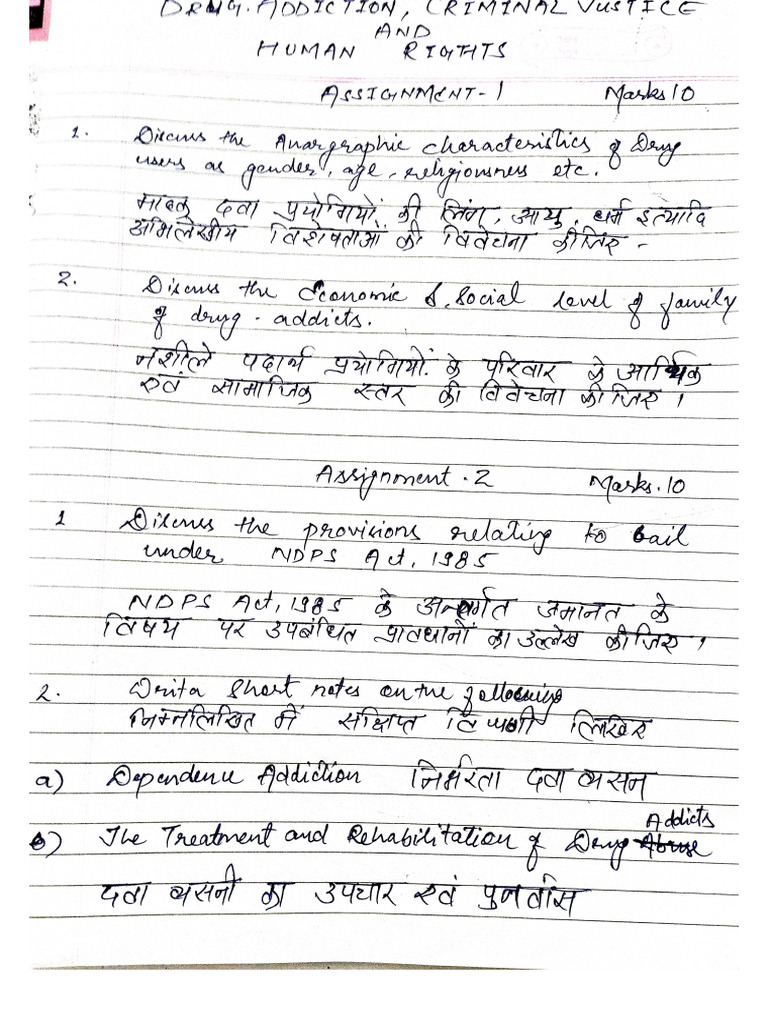 DRUG. ADDICTION, CRIMINAL JUSTICE
AND
HUMAN RIGHTS
ASSIGNMENT-1 Marks 10
1. Discuss the Anargraphic characteristics of Drug
users as gender, age, religiousness etc.
मादक दवा प्रयोगियों की लिंग, आयु, धर्म इत्यादि
अभिलेखीय विशेषताओं की विवेचना कीजिए -
2. Discuss the Economic & Social level of family
of drug-addicts.
नशीले पदार्थ प्रयोगियों के परिवार के आर्थिक
एवं सामाजिक स्तर की विवेचना कीजिए।
Assignment.2 Marks.10
1 Discuss the provisions relating to bail
under NDPS Act, 1985
NDPS Act, 1985 के अन्तर्गत जमानत के
विषय पर उपबंधित प्रावधानों का उल्लेख कीजिए।
2. Write Short notes on the following
निम्नलिखित में संक्षिप्त टिप्पणी लिखिए
a) Dependence Addiction निर्भरता दवा व्यसन
b) The Treatment and Rehabilitation of Drug Abuse Addicts
दवा व्यसनी का उपचार एवं पुनर्वास